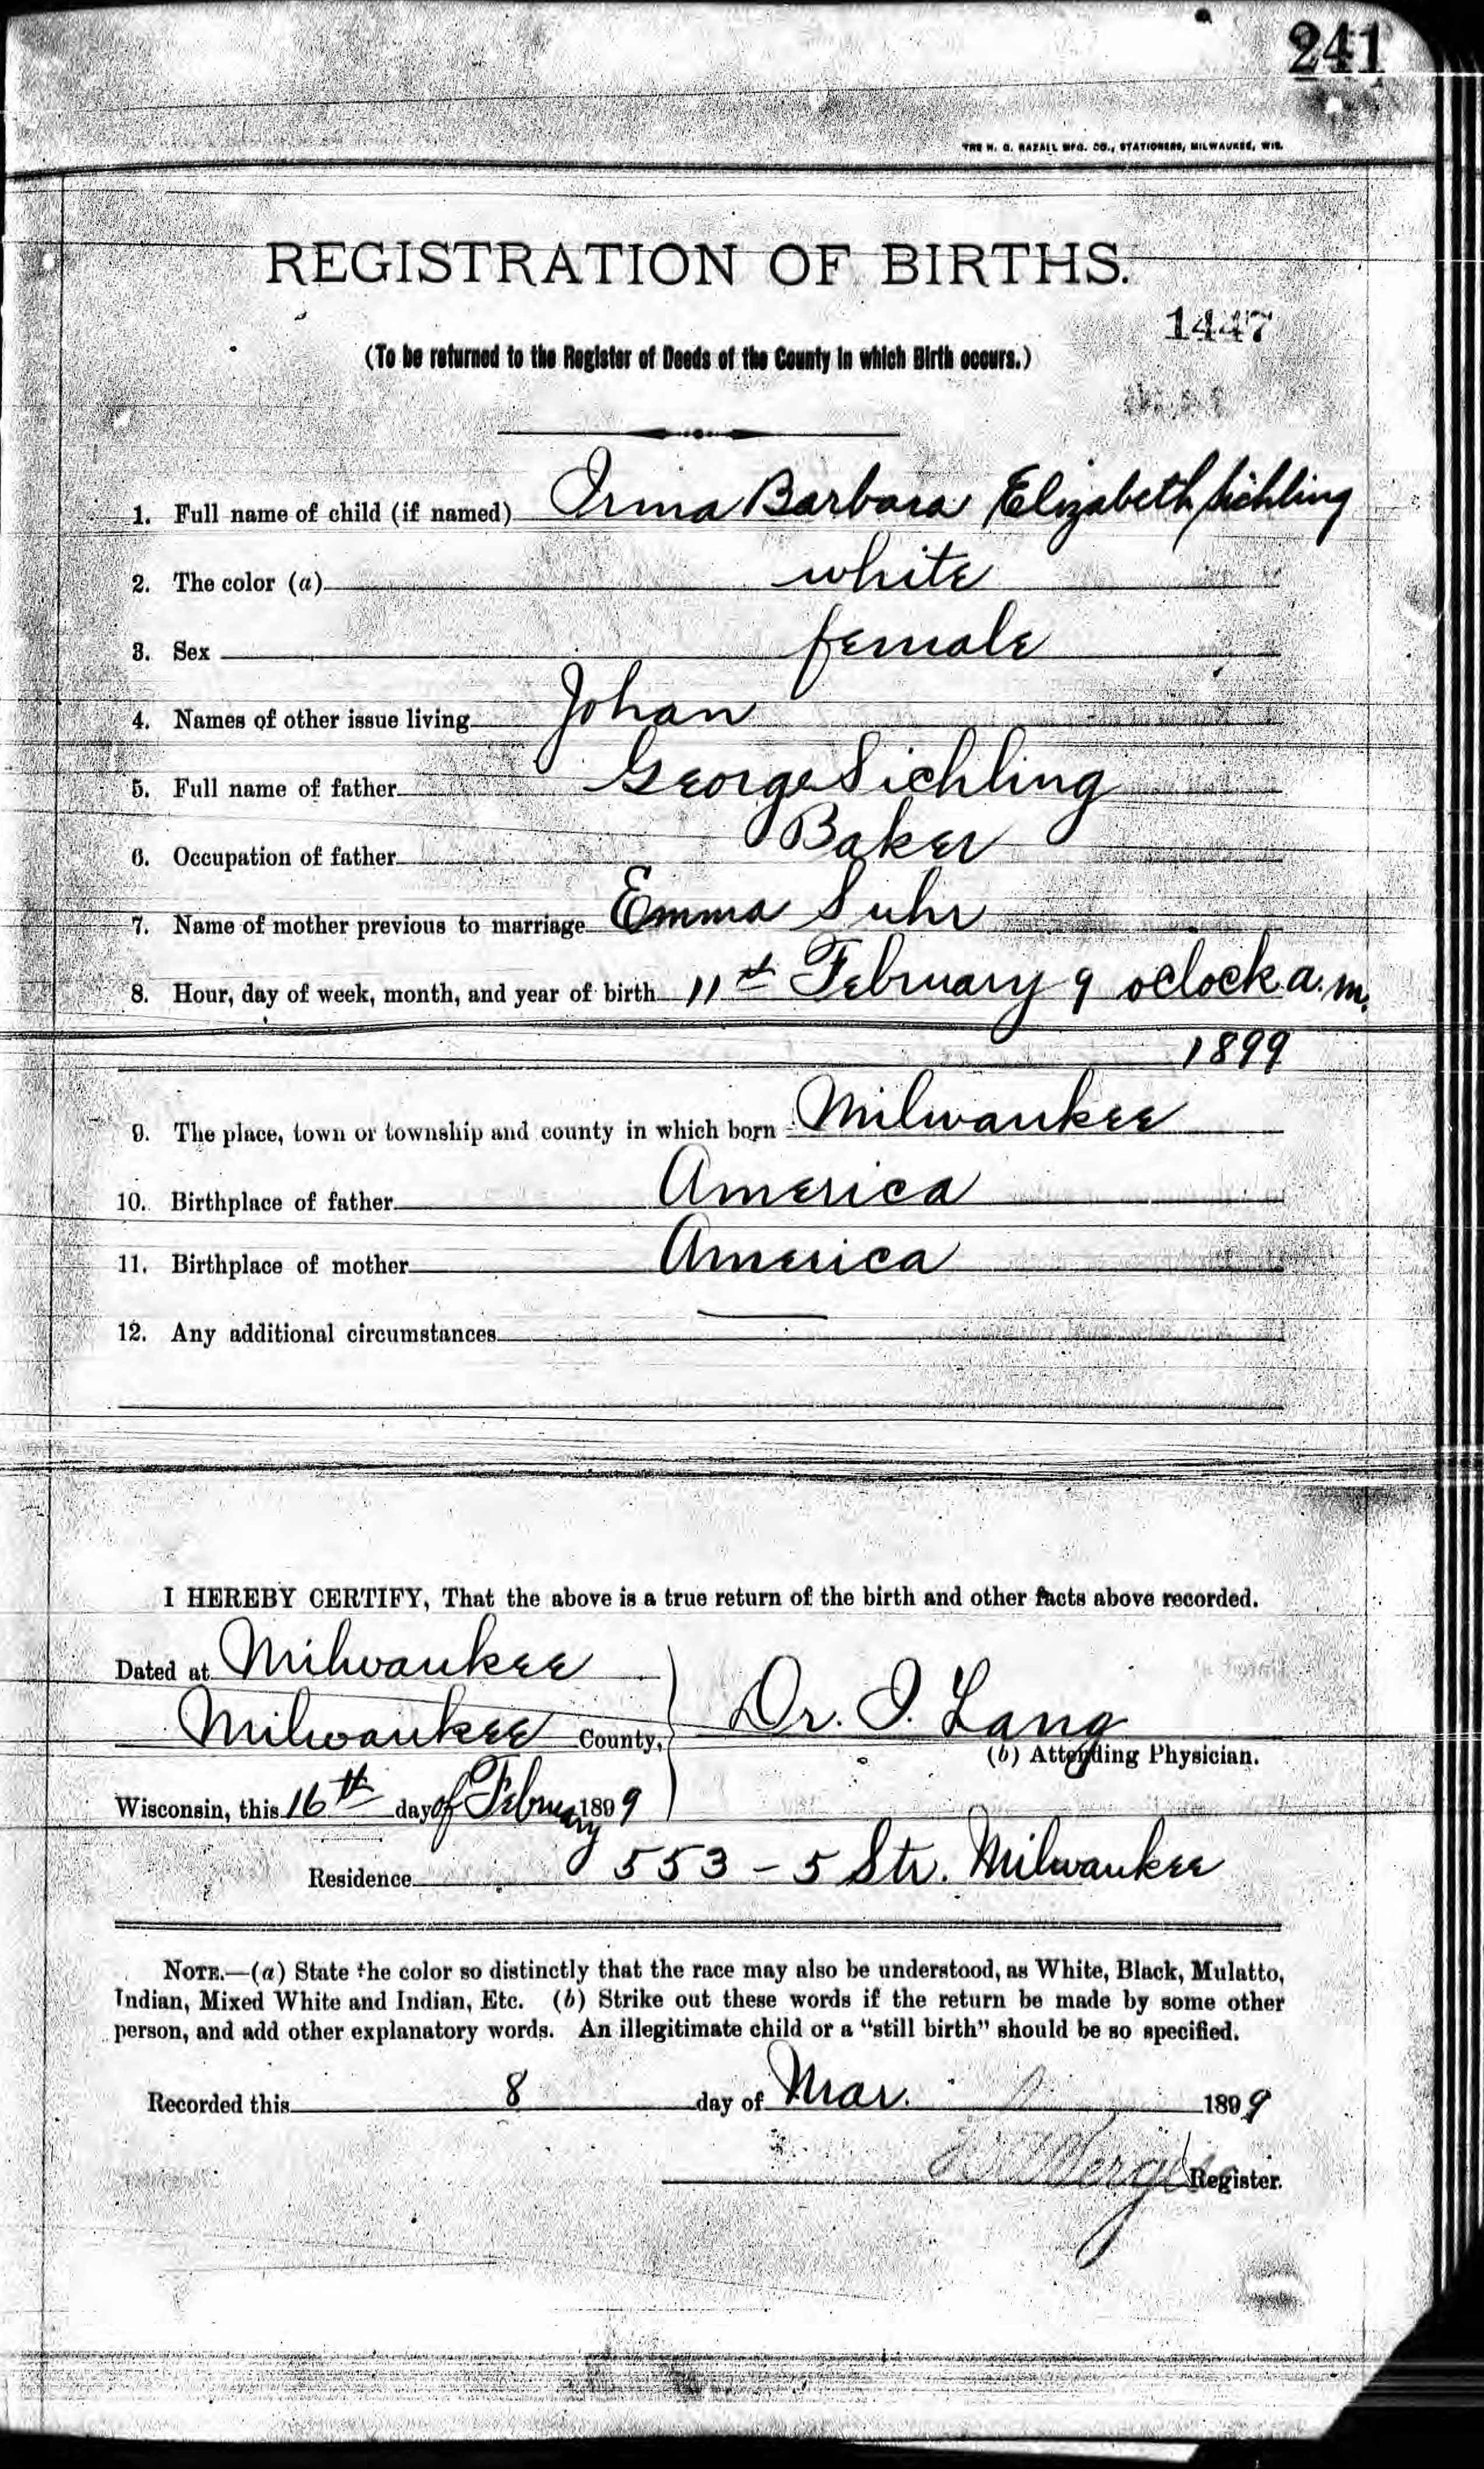 241
THE H. G. RAZALL MFG. CO., STATIONERS, MILWAUKEE, WIS.
REGISTRATION OF BIRTHS.
1447
(To be returned to the Register of Deeds of the County in which Birth occurs.)
1. Full name of child (if named) Irma Barbara Elizabeth Sichling
2. The color (a) white
3. Sex female
4. Names of other issue living Johan
5. Full name of father George Sichling
6. Occupation of father Baker
7. Name of mother previous to marriage Emma Suhr
8. Hour, day of week, month, and year of birth 11th February 9 oclock a.m.
1899
9. The place, town or township and county in which born Milwaukee
10. Birthplace of father America
11. Birthplace of mother America
12. Any additional circumstances
I HEREBY CERTIFY, That the above is a true return of the birth and other facts above recorded.
Dated at Milwaukee
Milwaukee County, Dr. I. Lang
(b) Attending Physician.
Wisconsin, this 16th day of February 1899
Residence 553 - 5 Str. Milwaukee
NOTE.—(a) State the color so distinctly that the race may also be understood, as White, Black, Mulatto,
Indian, Mixed White and Indian, Etc. (b) Strike out these words if the return be made by some other
person, and add other explanatory words. An illegitimate child or a "still birth" should be so specified.
Recorded this 8 day of Mar. 1899
Register.